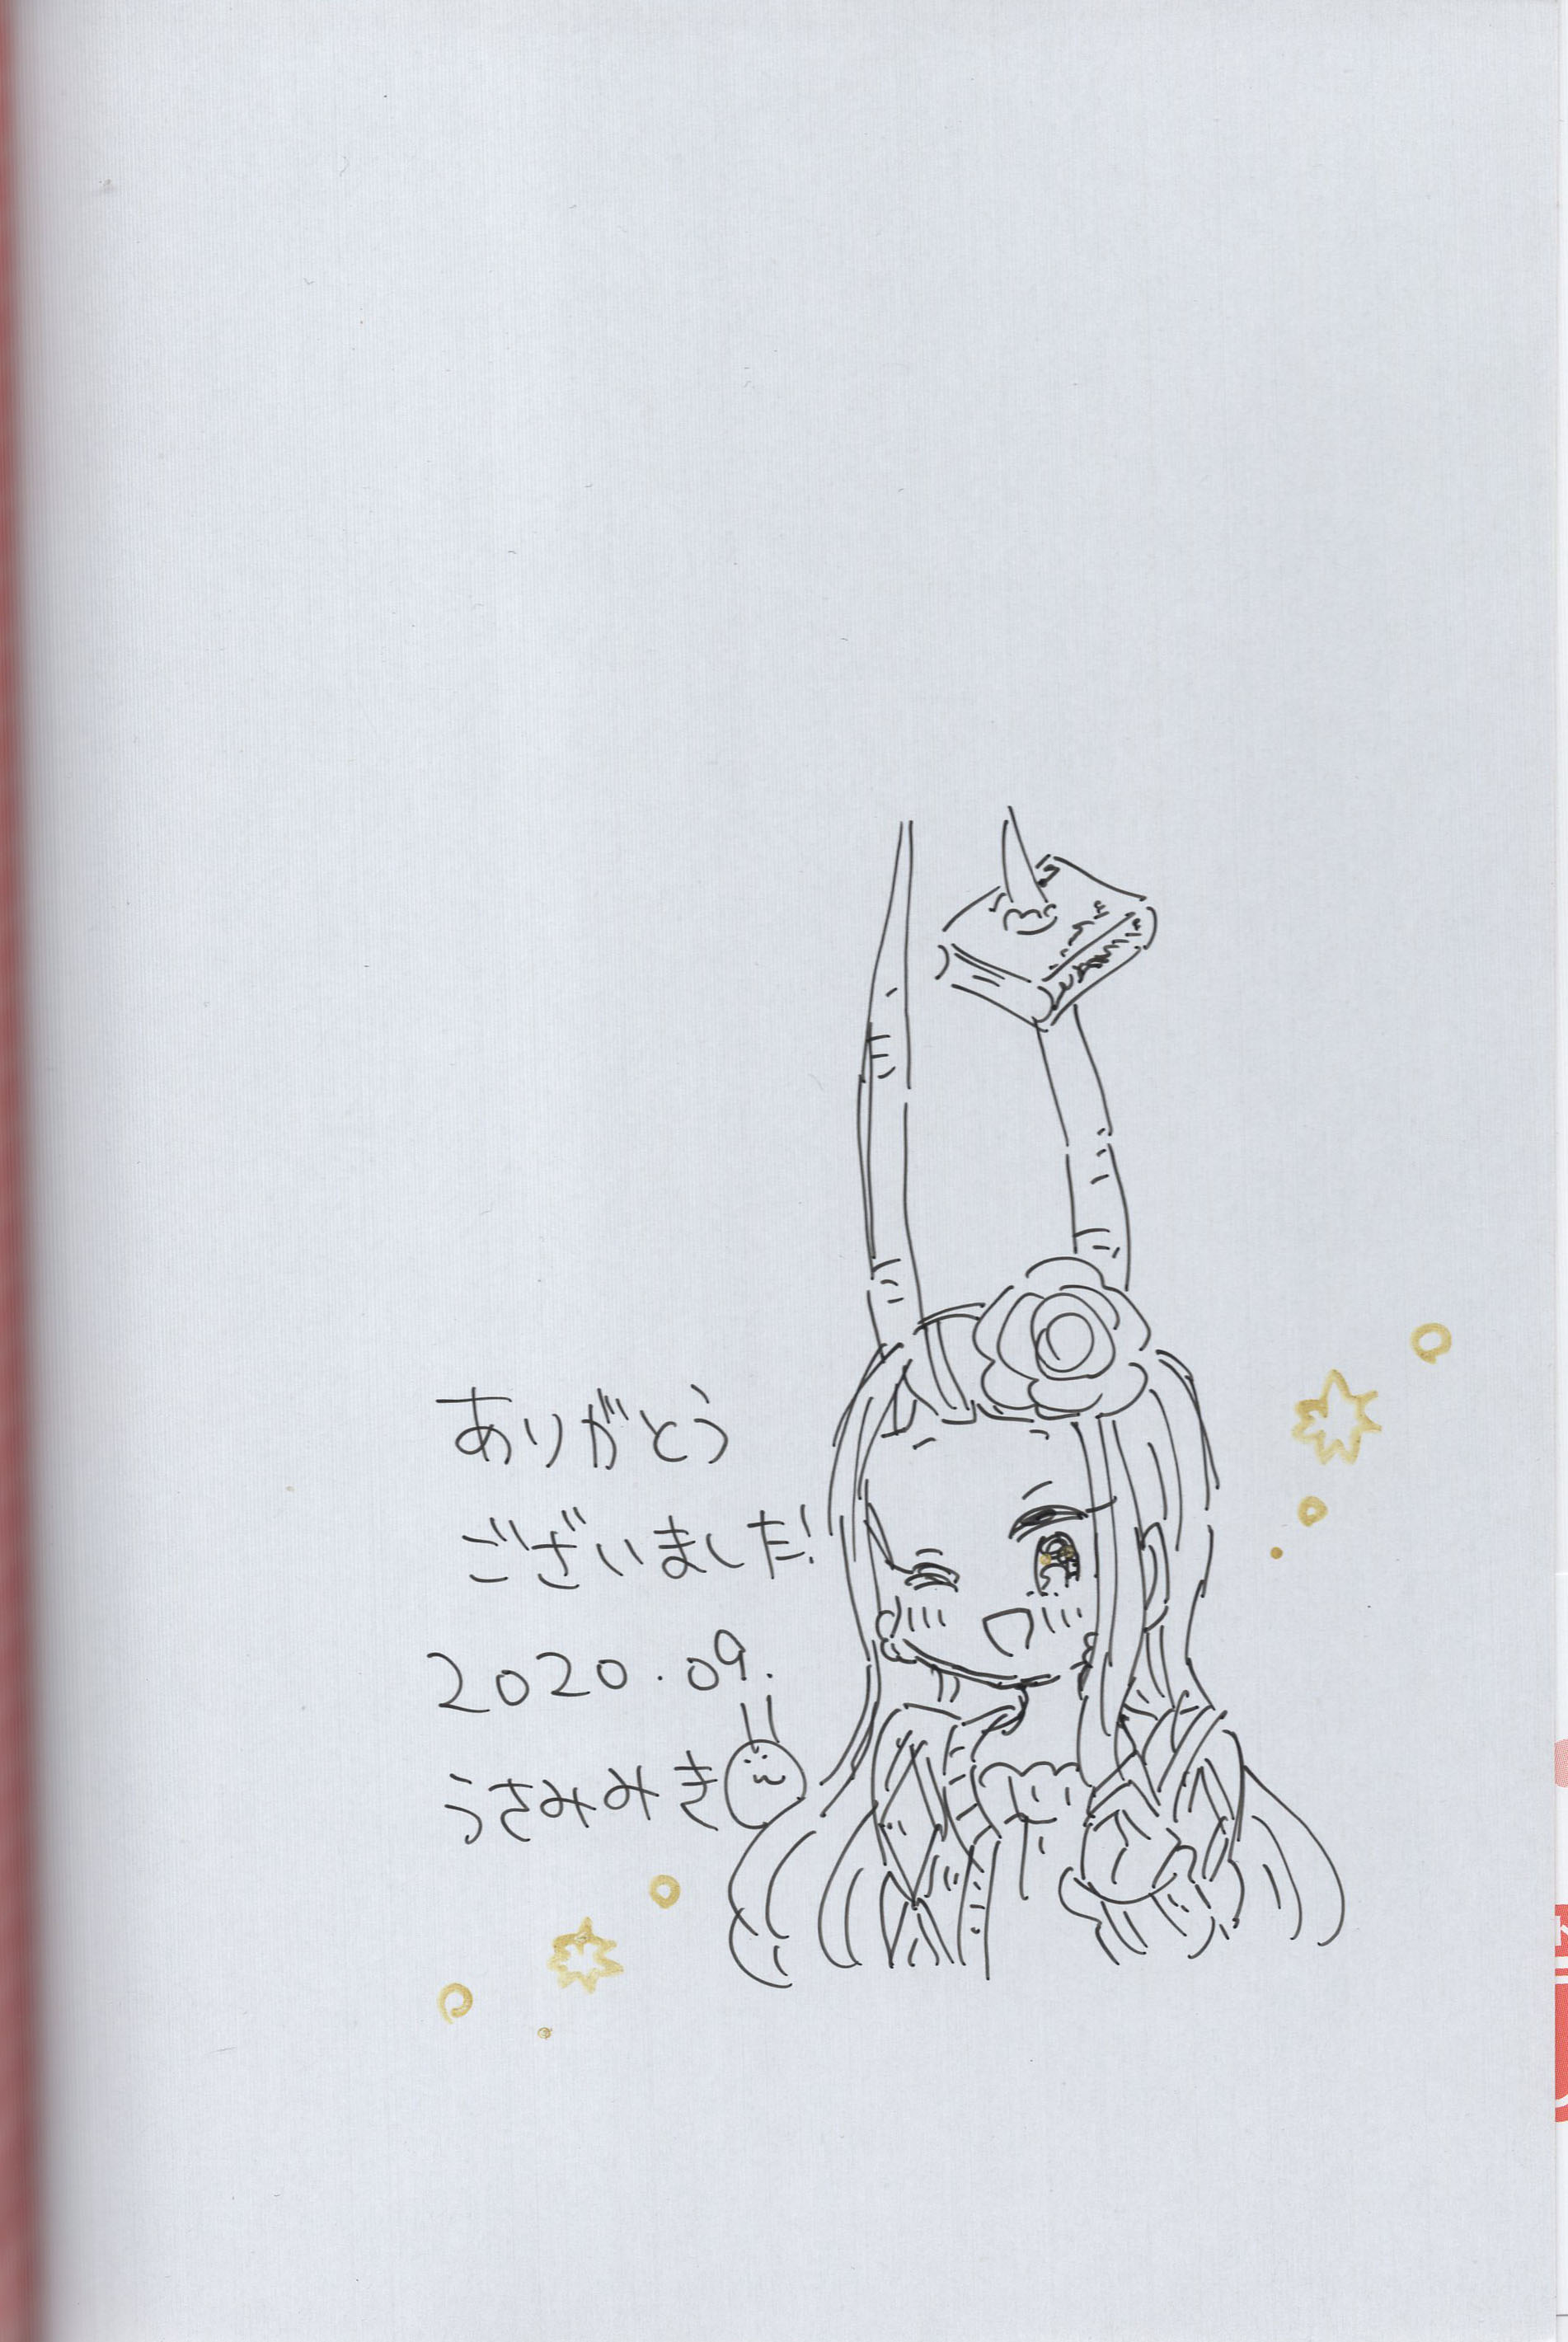 ありがとう
ございました!
2020.09.
うさみみき